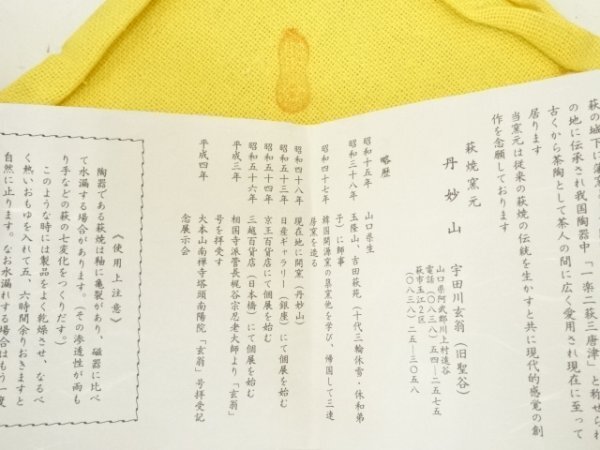 萩の城下に蒲窯
の地に伝承され我国陶器中「一楽二萩三唐津」と称せられ
古くから茶陶として茶人の間に広く愛用され現在に至って
居ります
当窯元は従来の萩焼の伝統を生かすと共に現代的感覚の創
作を念願しております
萩焼窯元
丹妙山 宇田川玄翁（旧聖谷）
山口県阿武郡川上村遠谷
電話（〇八三八）五四-二五七五
萩市玉江2区
（〇八三八）二五-三〇五八
略歴
昭和十五年 山口県生
昭和三十八年 玉隆山、吉田萩苑（十代三輪休雪・休和弟
子）に師事
昭和四十七年 韓国開源窯の集窯他を学び、帰国して三連
房窯を造る
昭和四十八年 現在地に開窯（丹妙山）
昭和五十三年 日産ギャラリー（銀座）にて個展を始む
昭和五十四年 京王百貨店にて個展を始む
昭和五十六年 三越百貨店（日本橋）にて個展を始む
平成三年 相国寺派管長梶谷宗忍老大師より「玄翁」
号を拝受す
平成四年 大本山南禅寺塔頭南陽院「玄翁」号拝受記
念展示会
《使用上注意》
陶器である萩焼は釉に亀裂があり、磁器に比べ
て水漏する場合があります。（その滲透性が雨も
り手などの萩の七変化をつくりだす。）
このような時には製品をよく乾燥させ、なるべ
く熱いおもゆを入れて五、六時間余りおきますと
自然に止ります。なお水漏れする場合はもう一度